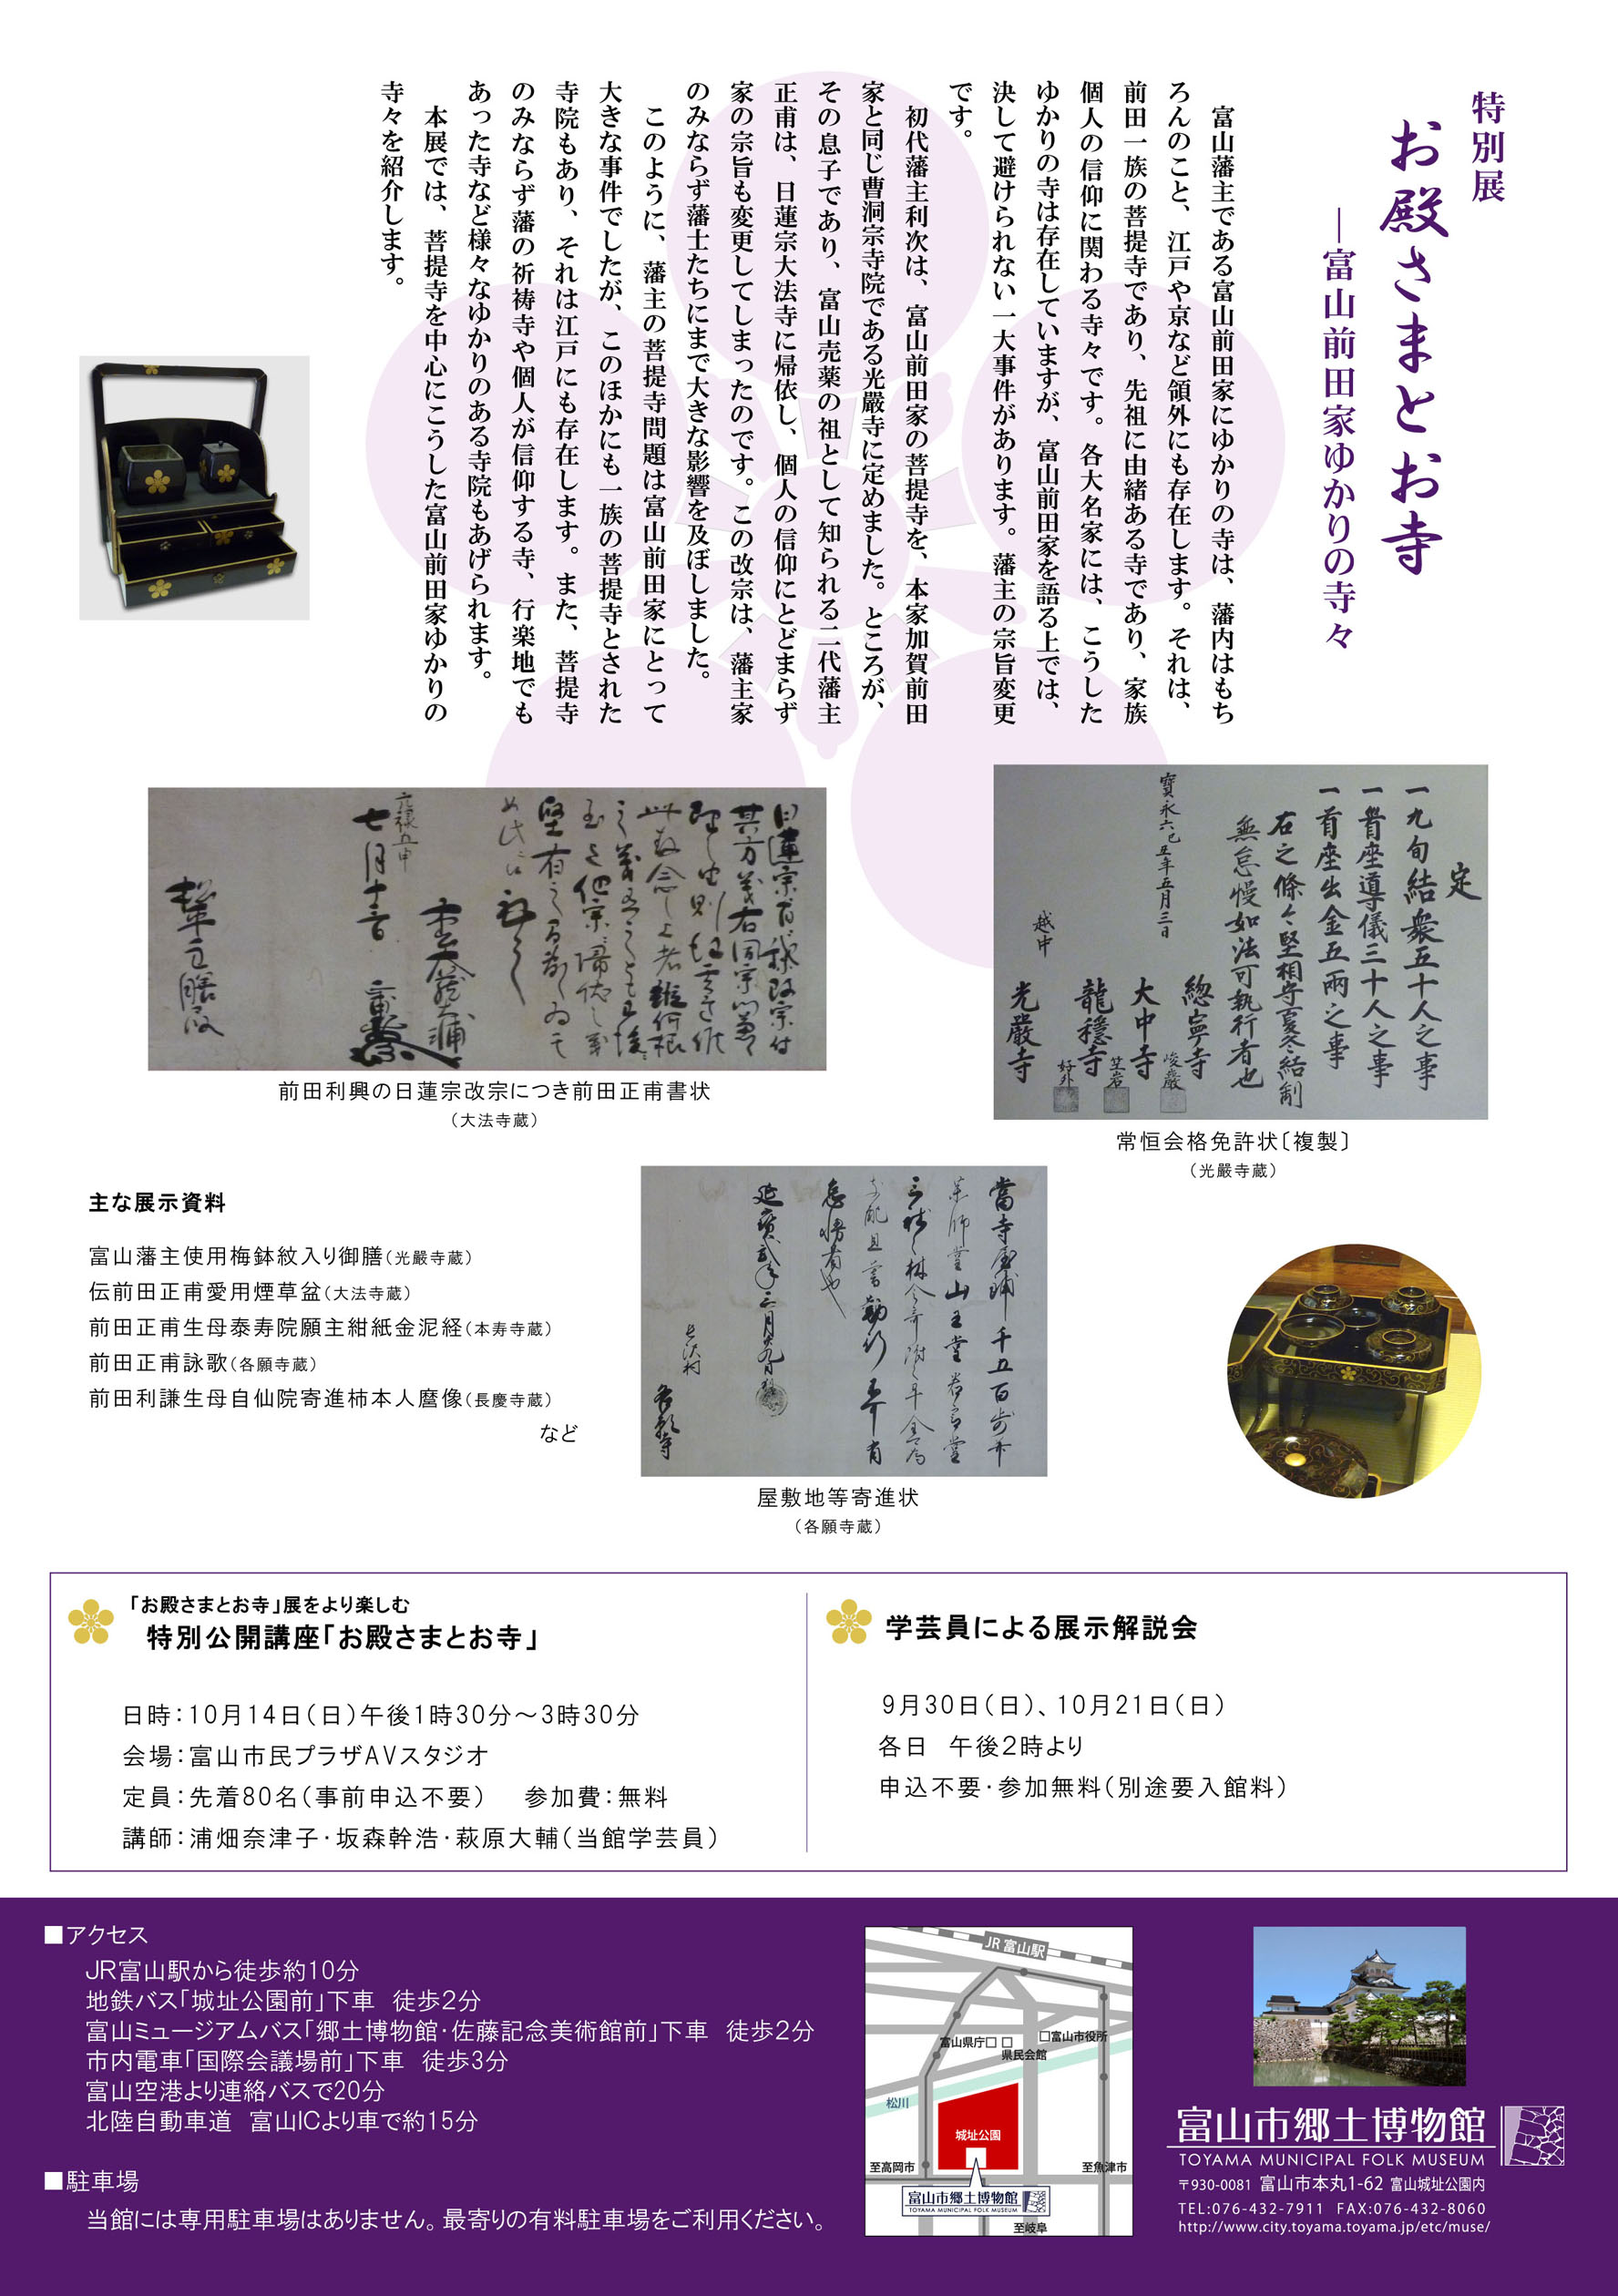 特別展
お殿さまとお寺
―富山前田家ゆかりの寺々
富山藩主である富山前田家にゆかりの寺は、藩内はもち
ろんのこと、江戸や京など領外にも存在します。それは、
前田一族の菩提寺であり、先祖に由緒ある寺であり、家族
個人の信仰に関わる寺々です。各大名家には、こうした
ゆかりの寺は存在していますが、富山前田家を語る上では、
決して避けられない一大事件があります。藩主の宗旨変更
です。
初代藩主利次は、富山前田家の菩提寺を、本家加賀前田
家と同じ曹洞宗寺院である光嚴寺に定めました。ところが、
その息子であり、富山売薬の祖として知られる二代藩主
正甫は、日蓮宗大法寺に帰依し、個人の信仰にとどまらず
家の宗旨も変更してしまったのです。この改宗は、藩主家
のみならず藩士たちにまで大きな影響を及ぼしました。
このように、藩主の菩提寺問題は富山前田家にとって
大きな事件でしたが、このほかにも一族の菩提寺とされた
寺院もあり、それは江戸にも存在します。また、菩提寺
のみならず藩の祈祷寺や個人が信仰する寺、行楽地でも
あった寺など様々なゆかりのある寺院もあげられます。
本展では、菩提寺を中心にこうした富山前田家ゆかりの
寺々を紹介します。
定
一九旬結衆五十人之事
一賷座導儀三十人之事
一首座出金五両之事
右之條々堅相守夏冬結制
無怠慢如法可執行者也
寶永六己丑年五月三日
總寧寺
大中寺
龍穏寺
越中
光嚴寺
前田利興の日蓮宗改宗につき前田正甫書状
（大法寺蔵）
常恒会格免許状〔複製〕
（光嚴寺蔵）
屋敷地等寄進状
（各願寺蔵）
主な展示資料
富山藩主使用梅鉢紋入り御膳（光嚴寺蔵）
伝前田正甫愛用煙草盆（大法寺蔵）
前田正甫生母泰寿院願主紺紙金泥経（本寿寺蔵）
前田正甫詠歌（各願寺蔵）
前田利謙生母自仙院寄進柿本人麿像（長慶寺蔵）
など
「お殿さまとお寺」展をより楽しむ
特別公開講座「お殿さまとお寺」
日時：10月14日（日）午後1時30分～3時30分
会場：富山市民プラザAVスタジオ
定員：先着80名（事前申込不要）　参加費：無料
講師：浦畑奈津子・坂森幹浩・萩原大輔（当館学芸員）
学芸員による展示解説会
9月30日（日）、10月21日（日）
各日　午後2時より
申込不要・参加無料（別途要入館料）
■アクセス
JR富山駅から徒歩約10分
地鉄バス「城址公園前」下車　徒歩2分
富山ミュージアムバス「郷土博物館・佐藤記念美術館前」下車　徒歩2分
市内電車「国際会議場前」下車　徒歩3分
富山空港より連絡バスで20分
北陸自動車道　富山ICより車で約15分
■駐車場
当館には専用駐車場はありません。最寄りの有料駐車場をご利用ください。
JR富山駅
富山県庁
県民会館
富山市役所
松川
城址公園
至高岡市
至魚津市
富山市郷土博物館
TOYAMA MUNICIPAL FOLK MUSEUM
至岐阜
富山市郷土博物館
TOYAMA MUNICIPAL FOLK MUSEUM
〒930-0081 富山市本丸1-62 富山城址公園内
TEL:076-432-7911 FAX:076-432-8060
http://www.city.toyama.toyama.jp/etc/muse/